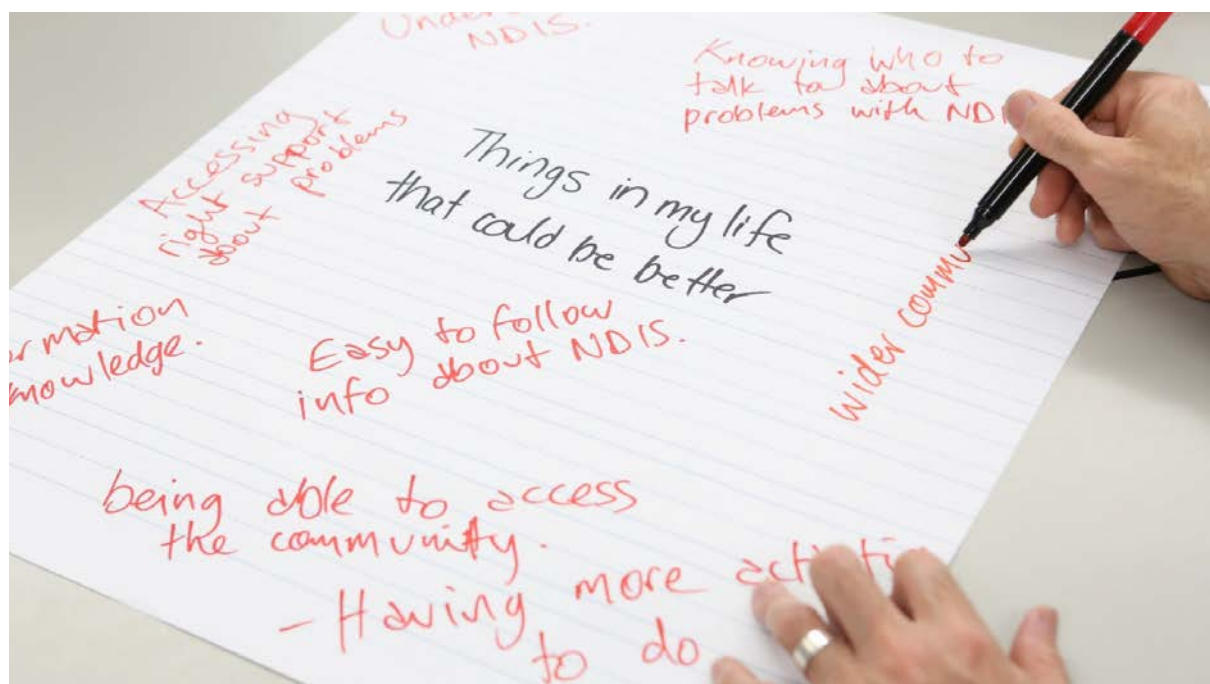 NDIS.
Knowing who to
talk to about
problems with
Accessing
right support
about problems
Things in my life
that could be better
knowledge.
Easy to follow
info about NDIS.
wider
being able to access
the community.
- Having more
to do